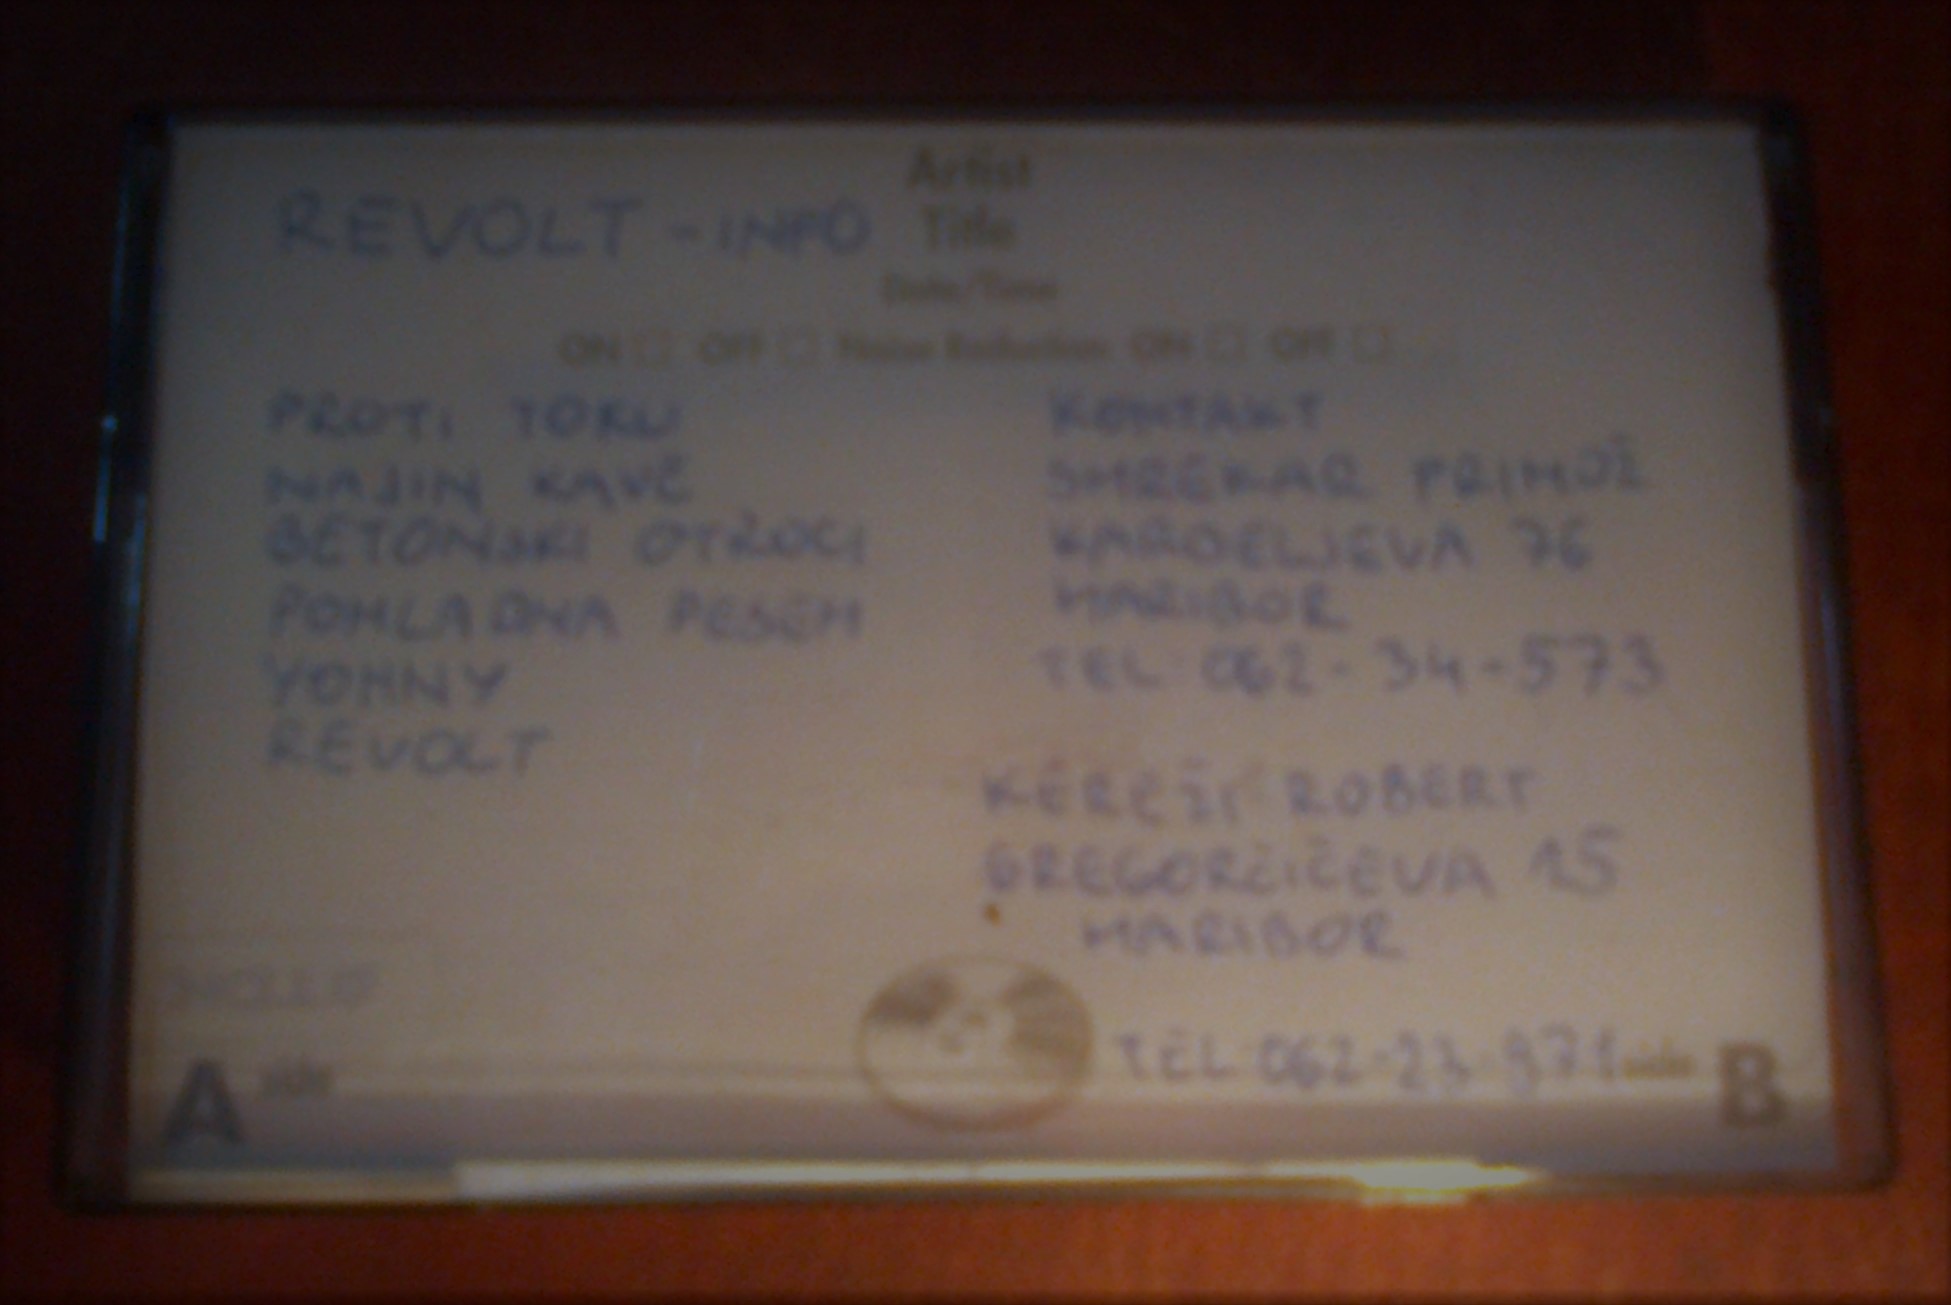 Artist
REVOLT - INFO Title
Date/Time
ON OFF Noise Reduction ON OFF
PROTI TOKU
NAJIN KAVČ
BETONSKI OTROCI
POMLADNA PESEM
YOHNY
REVOLT
KONTAKT
SMREKAR PRIMOŽ
KARDELJEVA 76
MARIBOR
TEL 062-34-573
KEREŽI ROBERT
GREGORČIČEVA 15
MARIBOR
TEL 062-23-971
A side
side B